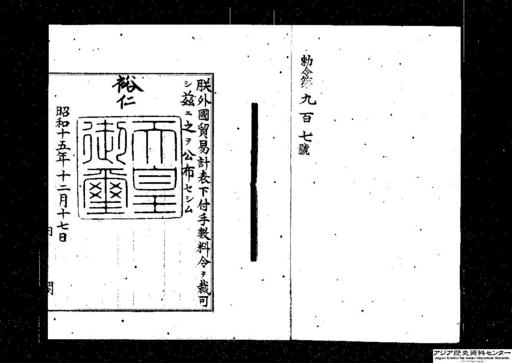 勅令第九百七號
朕外國貿易計表下付手製料令ヲ裁可
シ茲ニ之ヲ公布セシム
裕仁
天皇
御璽
昭和十五年十二月十七日
内閣
アジア歴史資料センター
Japan Center for Asian Historical Records